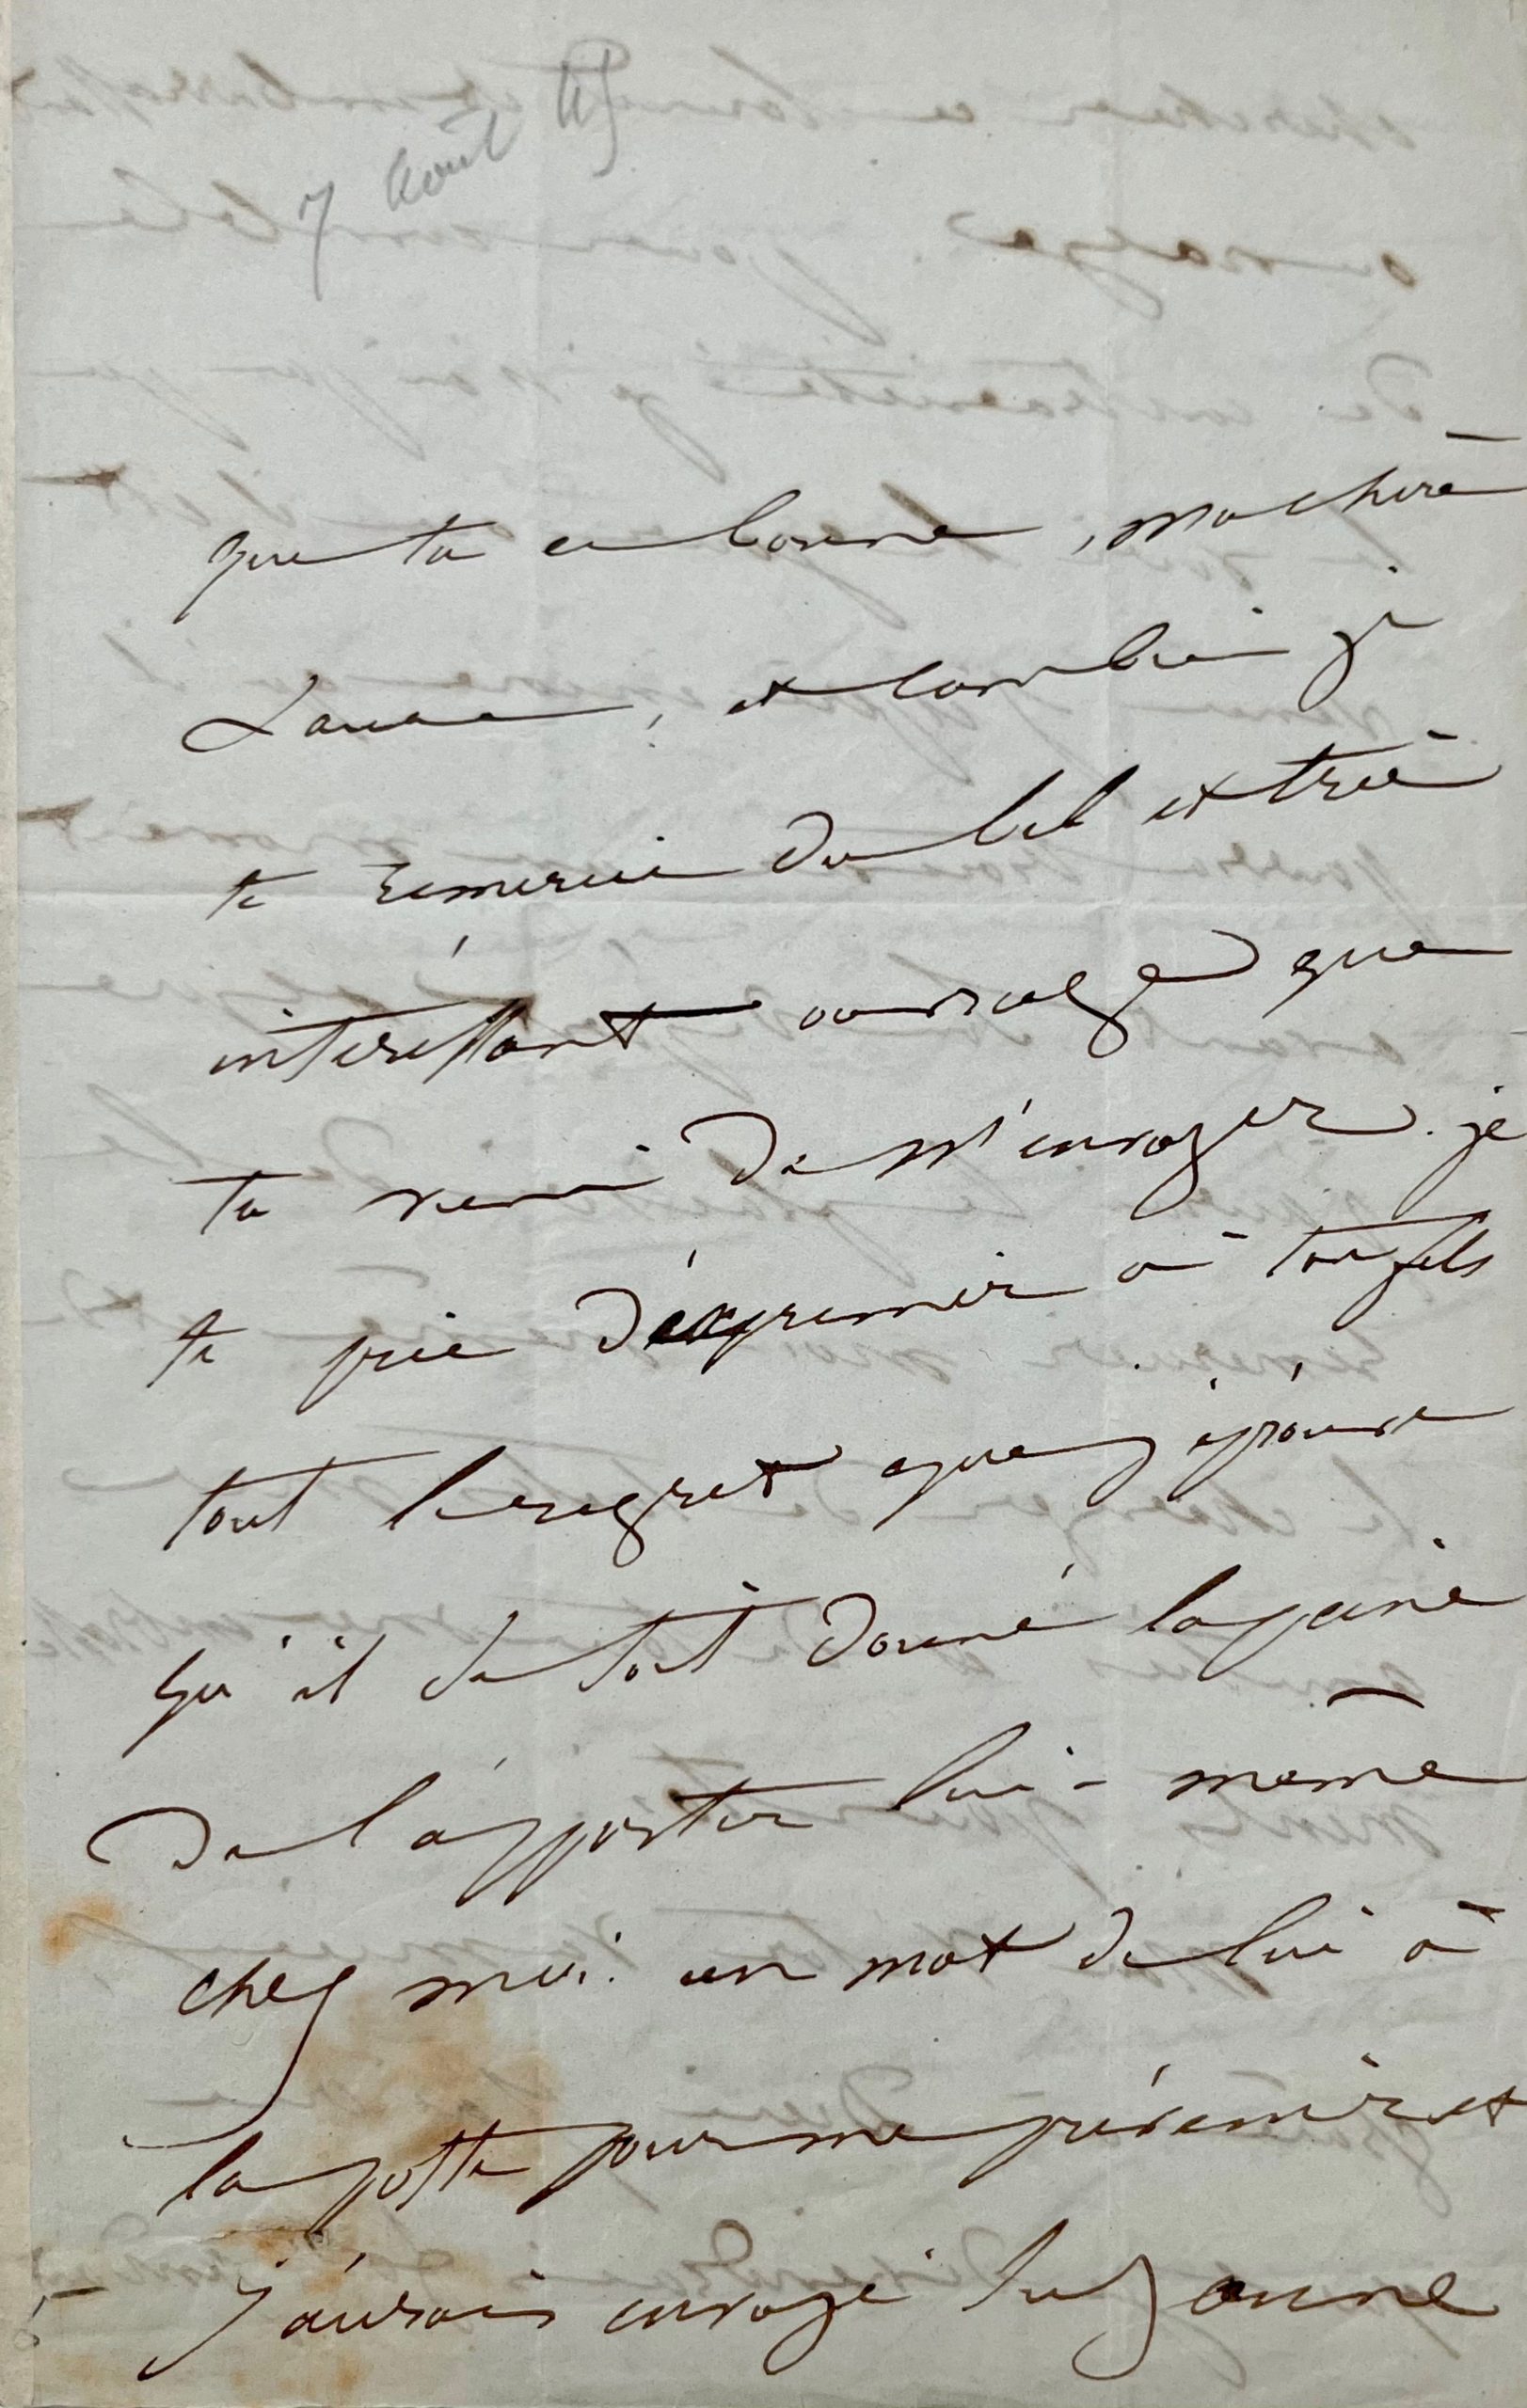 7 août 45
que tu es bonne, ma chère
Laure, et combien je
te remercie du bel et très
intéressant ouvrage que
tu viens de m'envoyer. je
te prie d'exprimer à ton fils
tout le regret que j'éprouve
qu'il se soit donné la peine
de l'apporter lui-même
chez moi. un mot de lui à
la poste pour me prévenir et
j'aurais envoyé Suzanne